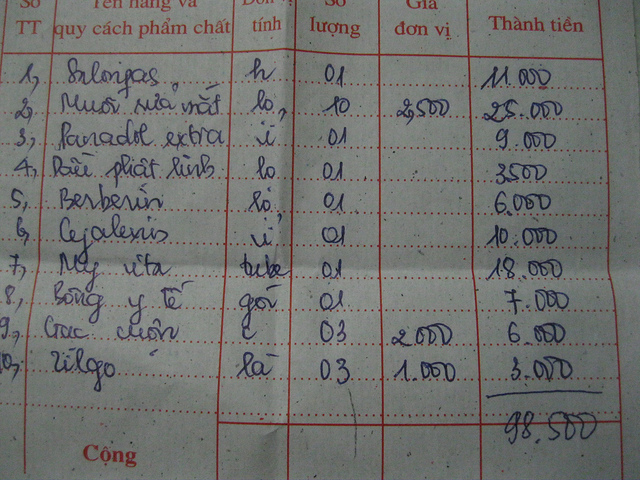 Số Tên hàng và Đơn vị Số Giá Thành tiền
TT quy cách phẩm chất tính lượng đơn vị
1, Salonpas h 01 11.000
2, Muối rửa mắt lọ, 10 2,500 25.000
3, Panadol extra vỉ 01 9.000
4, Dầu phật linh lo 01 3500
5, Berberin lọ, 01 6.000
6, Cefalexin vỉ 01 10.000
7, My vita tube 01 18.000
8, Bông y tế gói 01 7.000
9, Gạc c 03 2000 6.000
10, Zilgo lá 03 1.000 3.000
98.500
Cộng